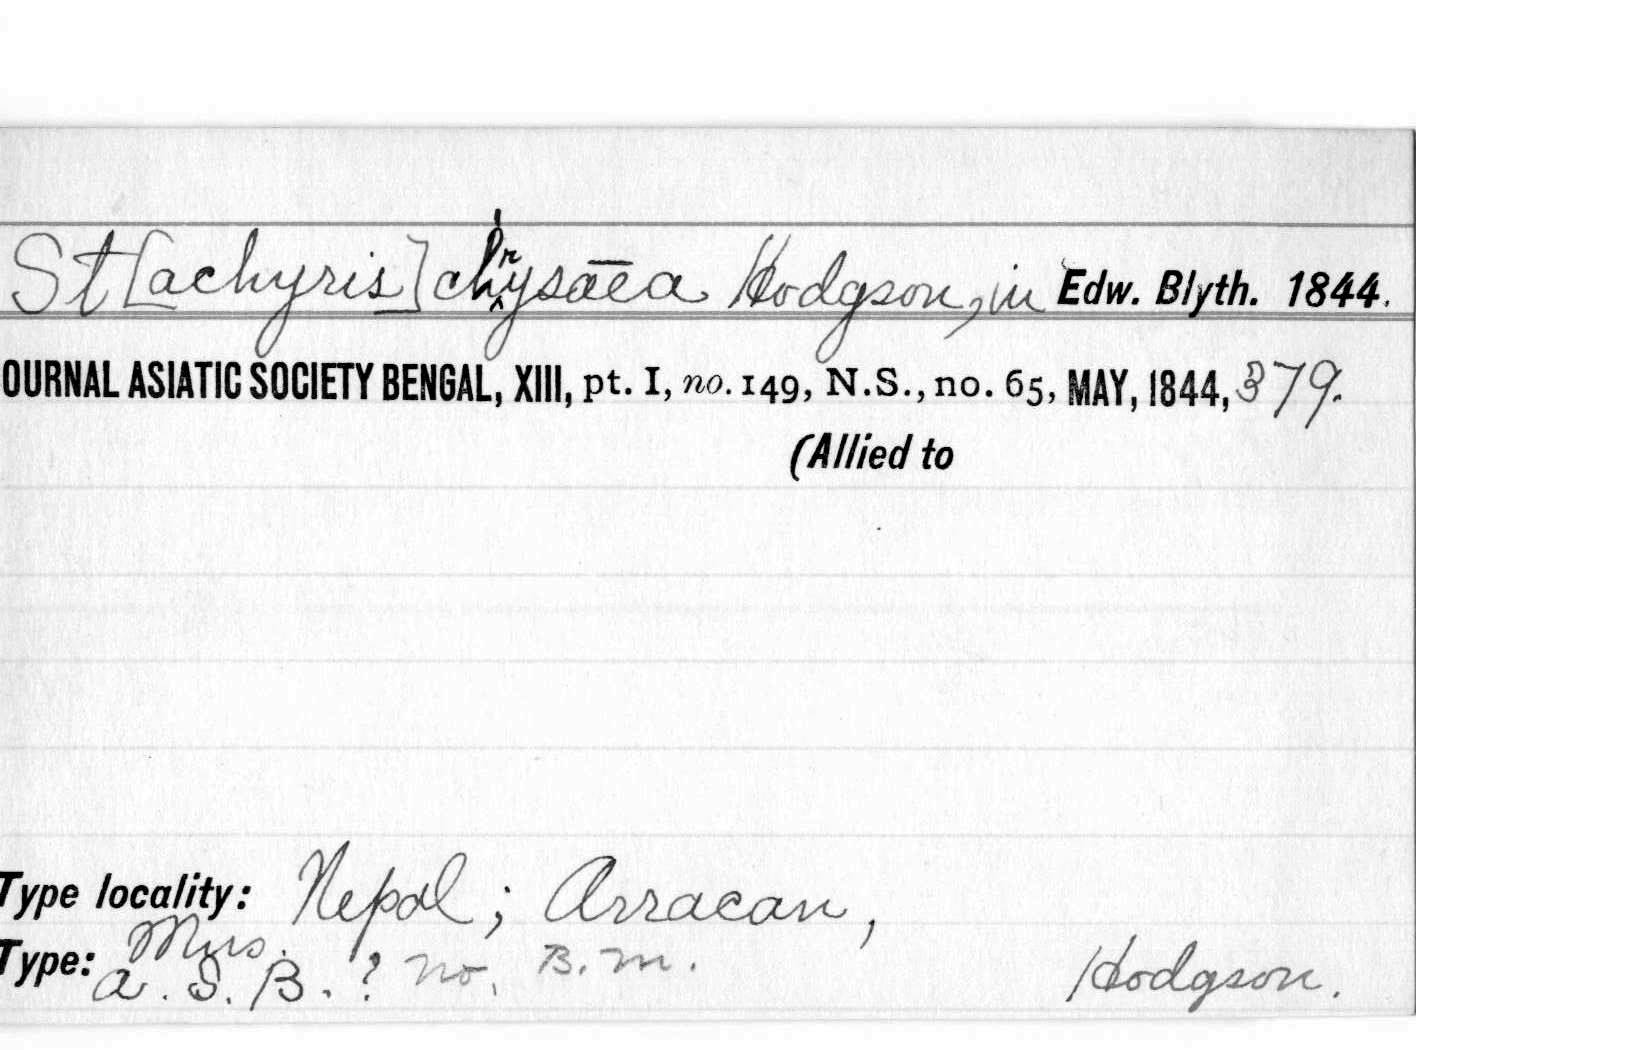 St[achyris] chrysæa Hodgson, in Edw. Blyth. 1844.
OURNAL ASIATIC SOCIETY BENGAL, XIII, pt. I, no. 149, N.S., no. 65, MAY, 1844, 379.
(Allied to
Type locality: Nepal; Arracan,
Type: Mus. A. S. B. ? no, B. M. Hodgson.